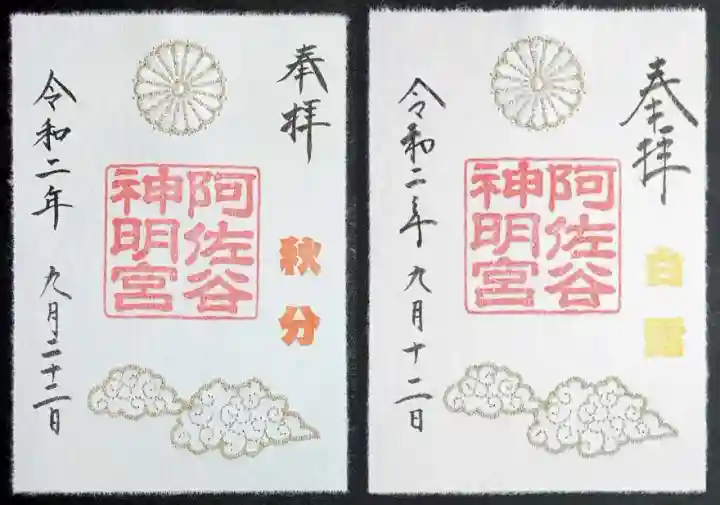 奉拝
秋分
阿佐谷
神明宮
令和二年 九月二十二日
奉拝
白露
阿佐谷
神明宮
令和二年 九月十二日